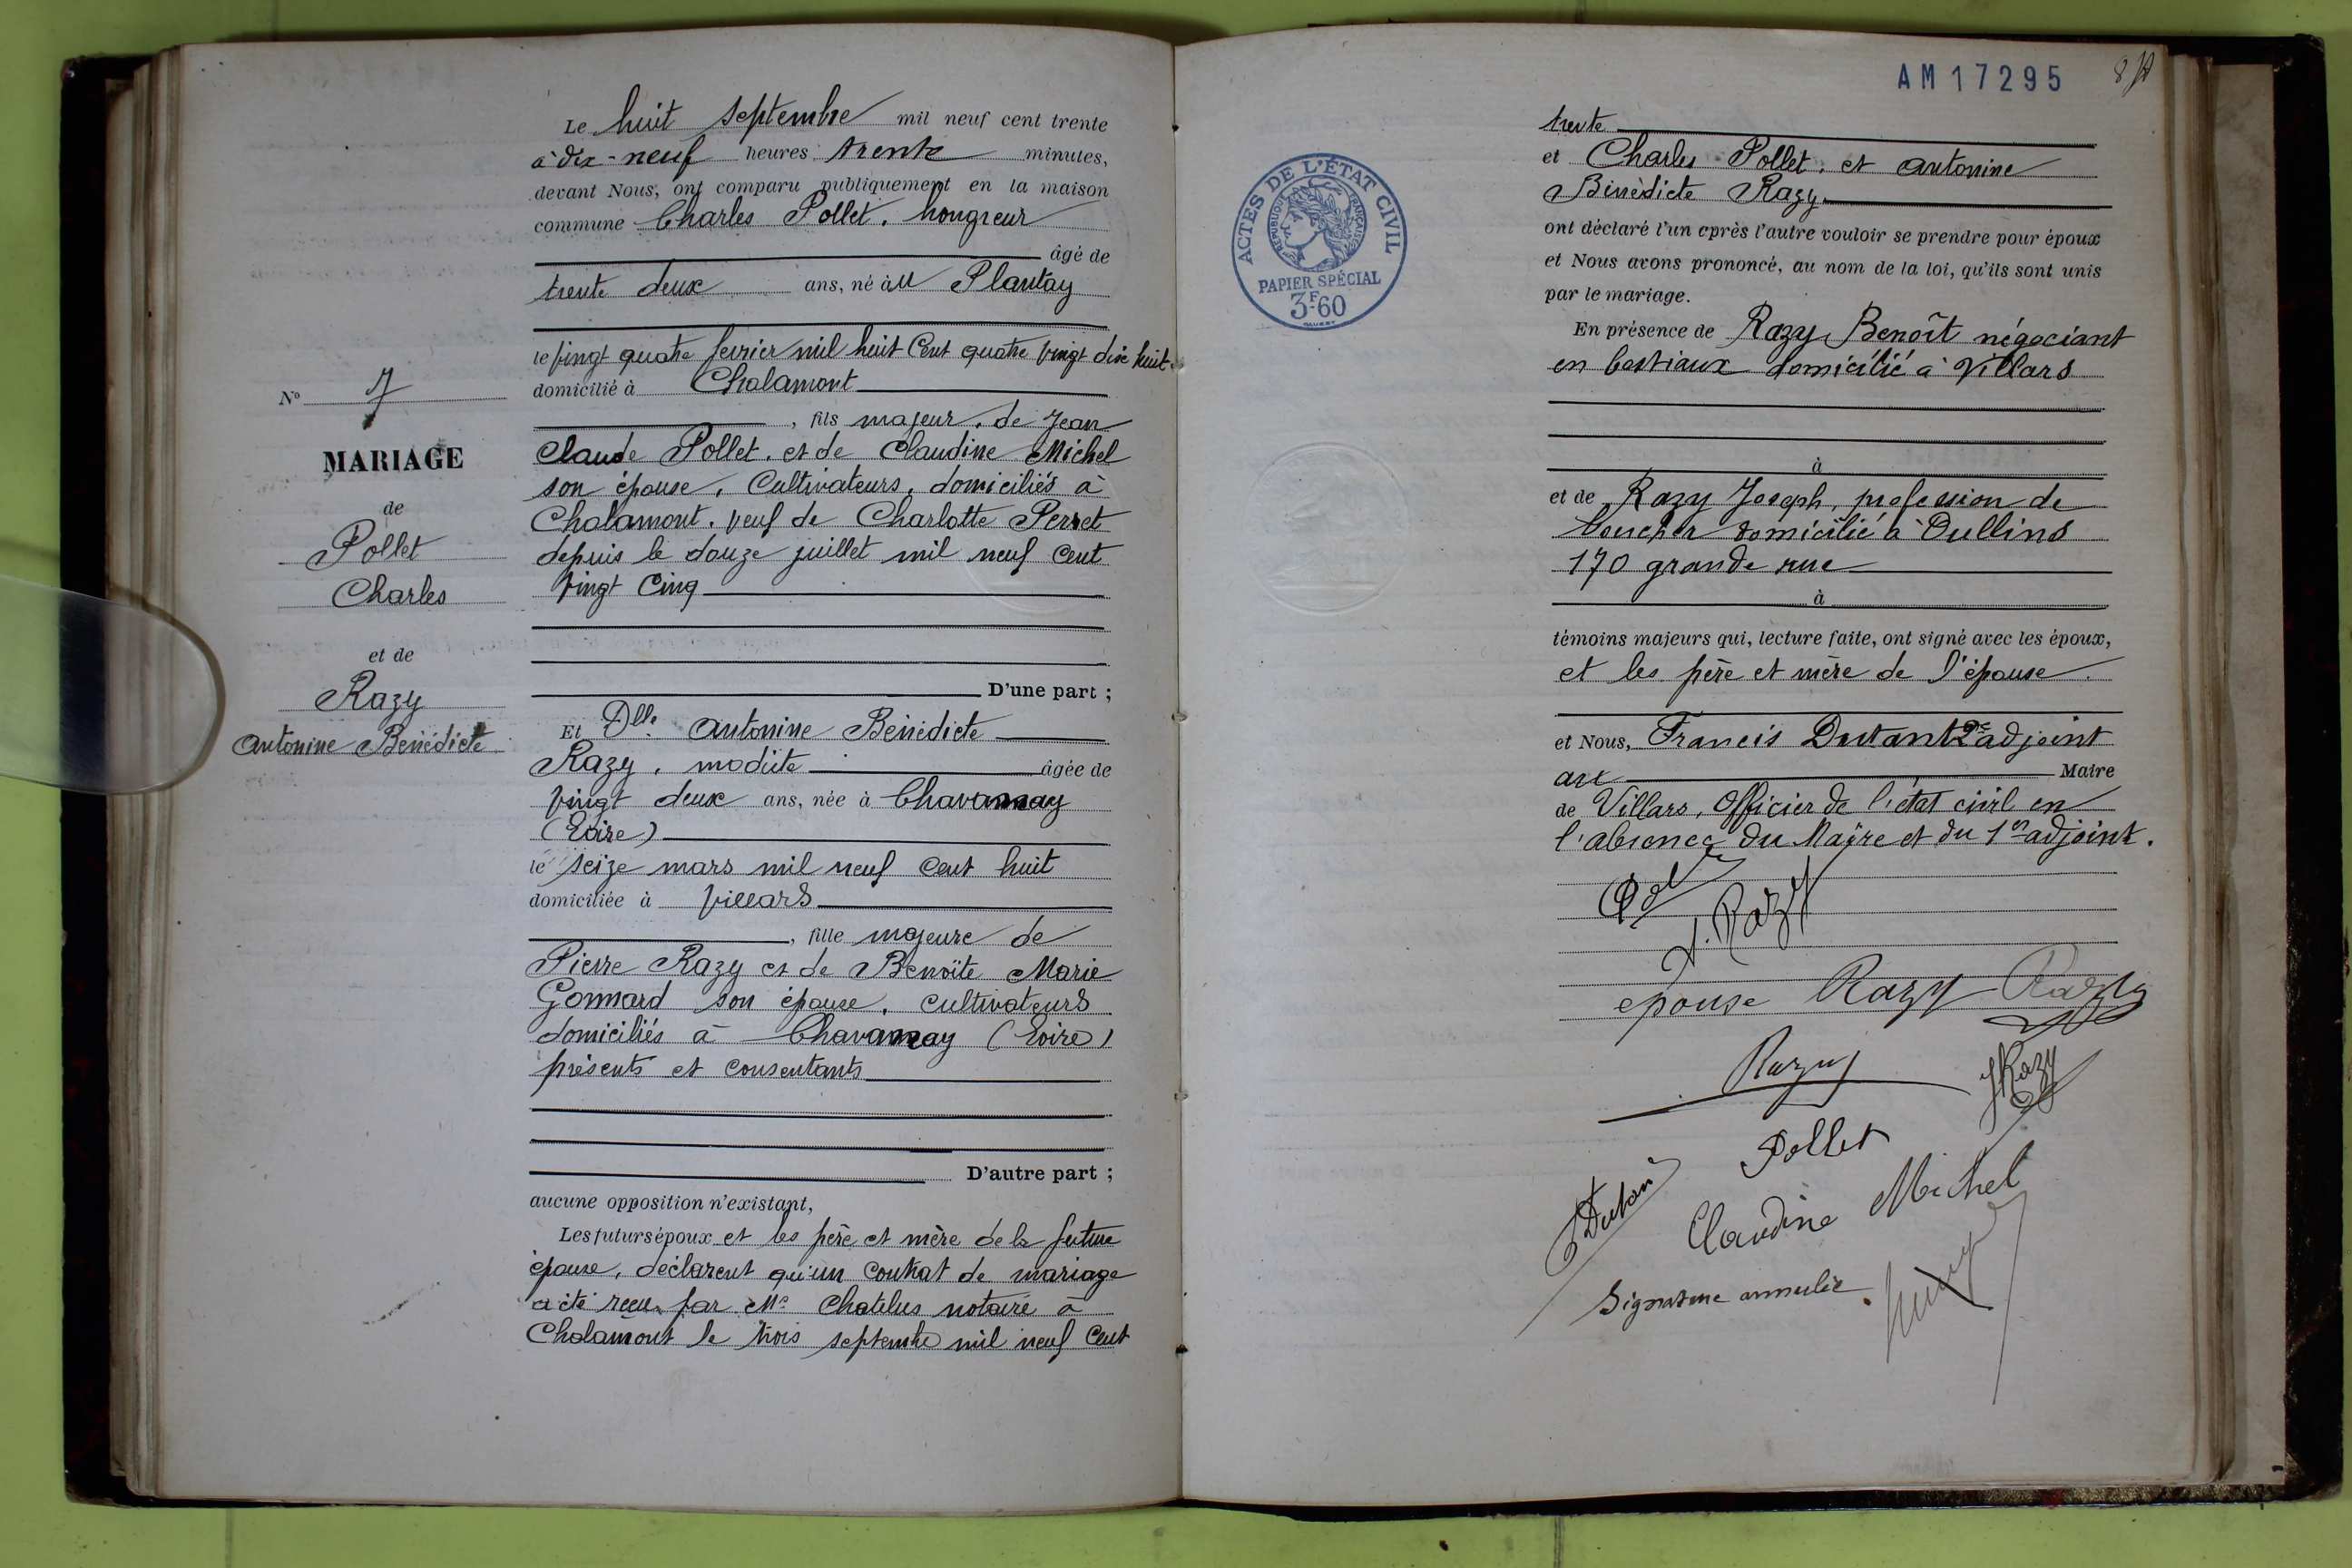 Le huit septembre mil neuf cent trente
à dix-neuf heures trente minutes,
devant Nous, ont comparu publiquement en la maison
commune Charles Pollet, hongreur
âgé de
trente deux ans, né au Plantay
le vingt quatre fevrier mil huit Cent quatre vingt dix huit
domicilié à Chalamont
, fils majeur, de Jean
Claude Pollet, et de Claudine Michel
son épouse, Cultivateurs, domiciliés à
Chalamont, veuf de Charlotte Perret
depuis le douze juillet mil neuf cent
vingt Cinq
D'une part ;
Nº 7
MARIAGE
de
Pollet
Charles
et de
Razy
Antonine Benédicte
Et Dlle Antonine Bénédicte
Razy, modiste âgée de
vingt deux ans, née à Chavannay
(Loire)
le seize mars mil neuf cent huit
domiciliée à Villars
, fille majeure de
Pierre Razy et de Benoîte Marie
Gonnard son épouse, cultivateurs
domiciliés à Chavannay (Loire)
présents et consentants
D'autre part ;
aucune opposition n'existant,
Les futurs époux et les père et mère de la future
épouse, déclarent qu'un contrat de mariage
a été reçu par Me Chatelus notaire à
Chalamont le trois septembre mil neuf Cent
AM 17295
trente
et Charles Pollet, et Antonine
Bénédicte Razy
ACTES DE L'ÉTAT CIVIL
RÉPUBLIQUE FRANÇAISE
PAPIER SPÉCIAL
3F60
ont déclaré l'un après l'autre vouloir se prendre pour époux
et Nous avons prononcé, au nom de la loi, qu'ils sont unis
par le mariage.
En présence de Razy Benoît négociant
en bestiaux domicilié à Villars
à
et de Razy Joseph, profession de
boucher domicilié à Oullins
170 grande rue
à
témoins majeurs qui, lecture faite, ont signé avec les époux,
et les père et mère de l'épouse.
et Nous, Francis Dutant 2e adjoint
au Maire
de Villars, Officier de l'état civil en
l'absence du Maire et du 1er adjoint.
A. Razy
épouse Razy Razy
Razy
JRazy
Pollet
Dutant
Claudine Michel
Signature annulée